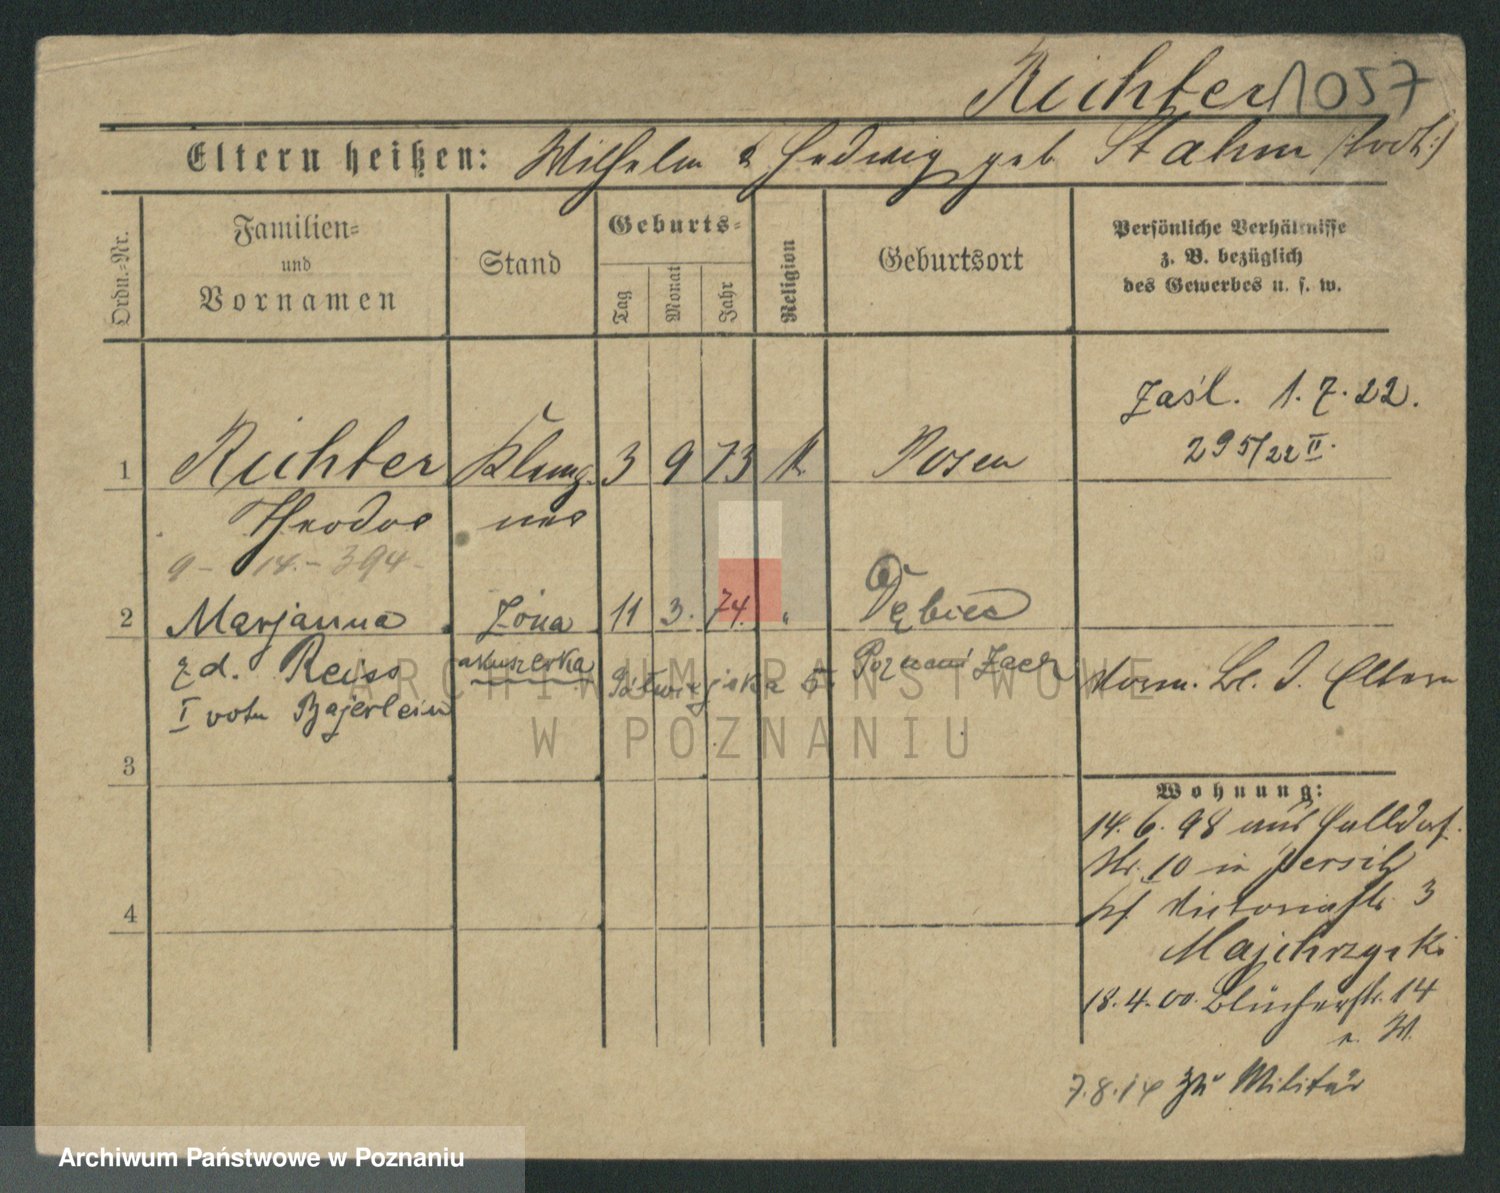 Richter 1057
Eltern heißen: Wilhelm & Hedwig geb Stahm (:todt:)
Ordn.=Nr.
Familien=
und
Vornamen
Stand
Geburts=
Tag
Monat
Jahr
Religion
Geburtsort
Persönliche Verhältnisse
z. B. bezüglich
des Gewerbes u. s. w.
Zaśl. 1.7.22.
295/22 II.
1 Richter Klemp 3 9 73 K Posen
Theodor ner
9- 14.- 394-
2 Marjanna Żona 11 3. 74. " Dębiec
zd. Reiss akuszerka Poznań Zach
I voto Bajerlein
Eltern
3
Wohnung:
14. 6. 98 aus
10 in Jersitz
Victoriastr. 3
Majchrzycki
4
18.4.00. Blücherstr. 14
n. W.
7.8.14 zu Militär
ARCHIWUM PAŃSTWOWE
W POZNANIU
Archiwum Państwowe w Poznaniu